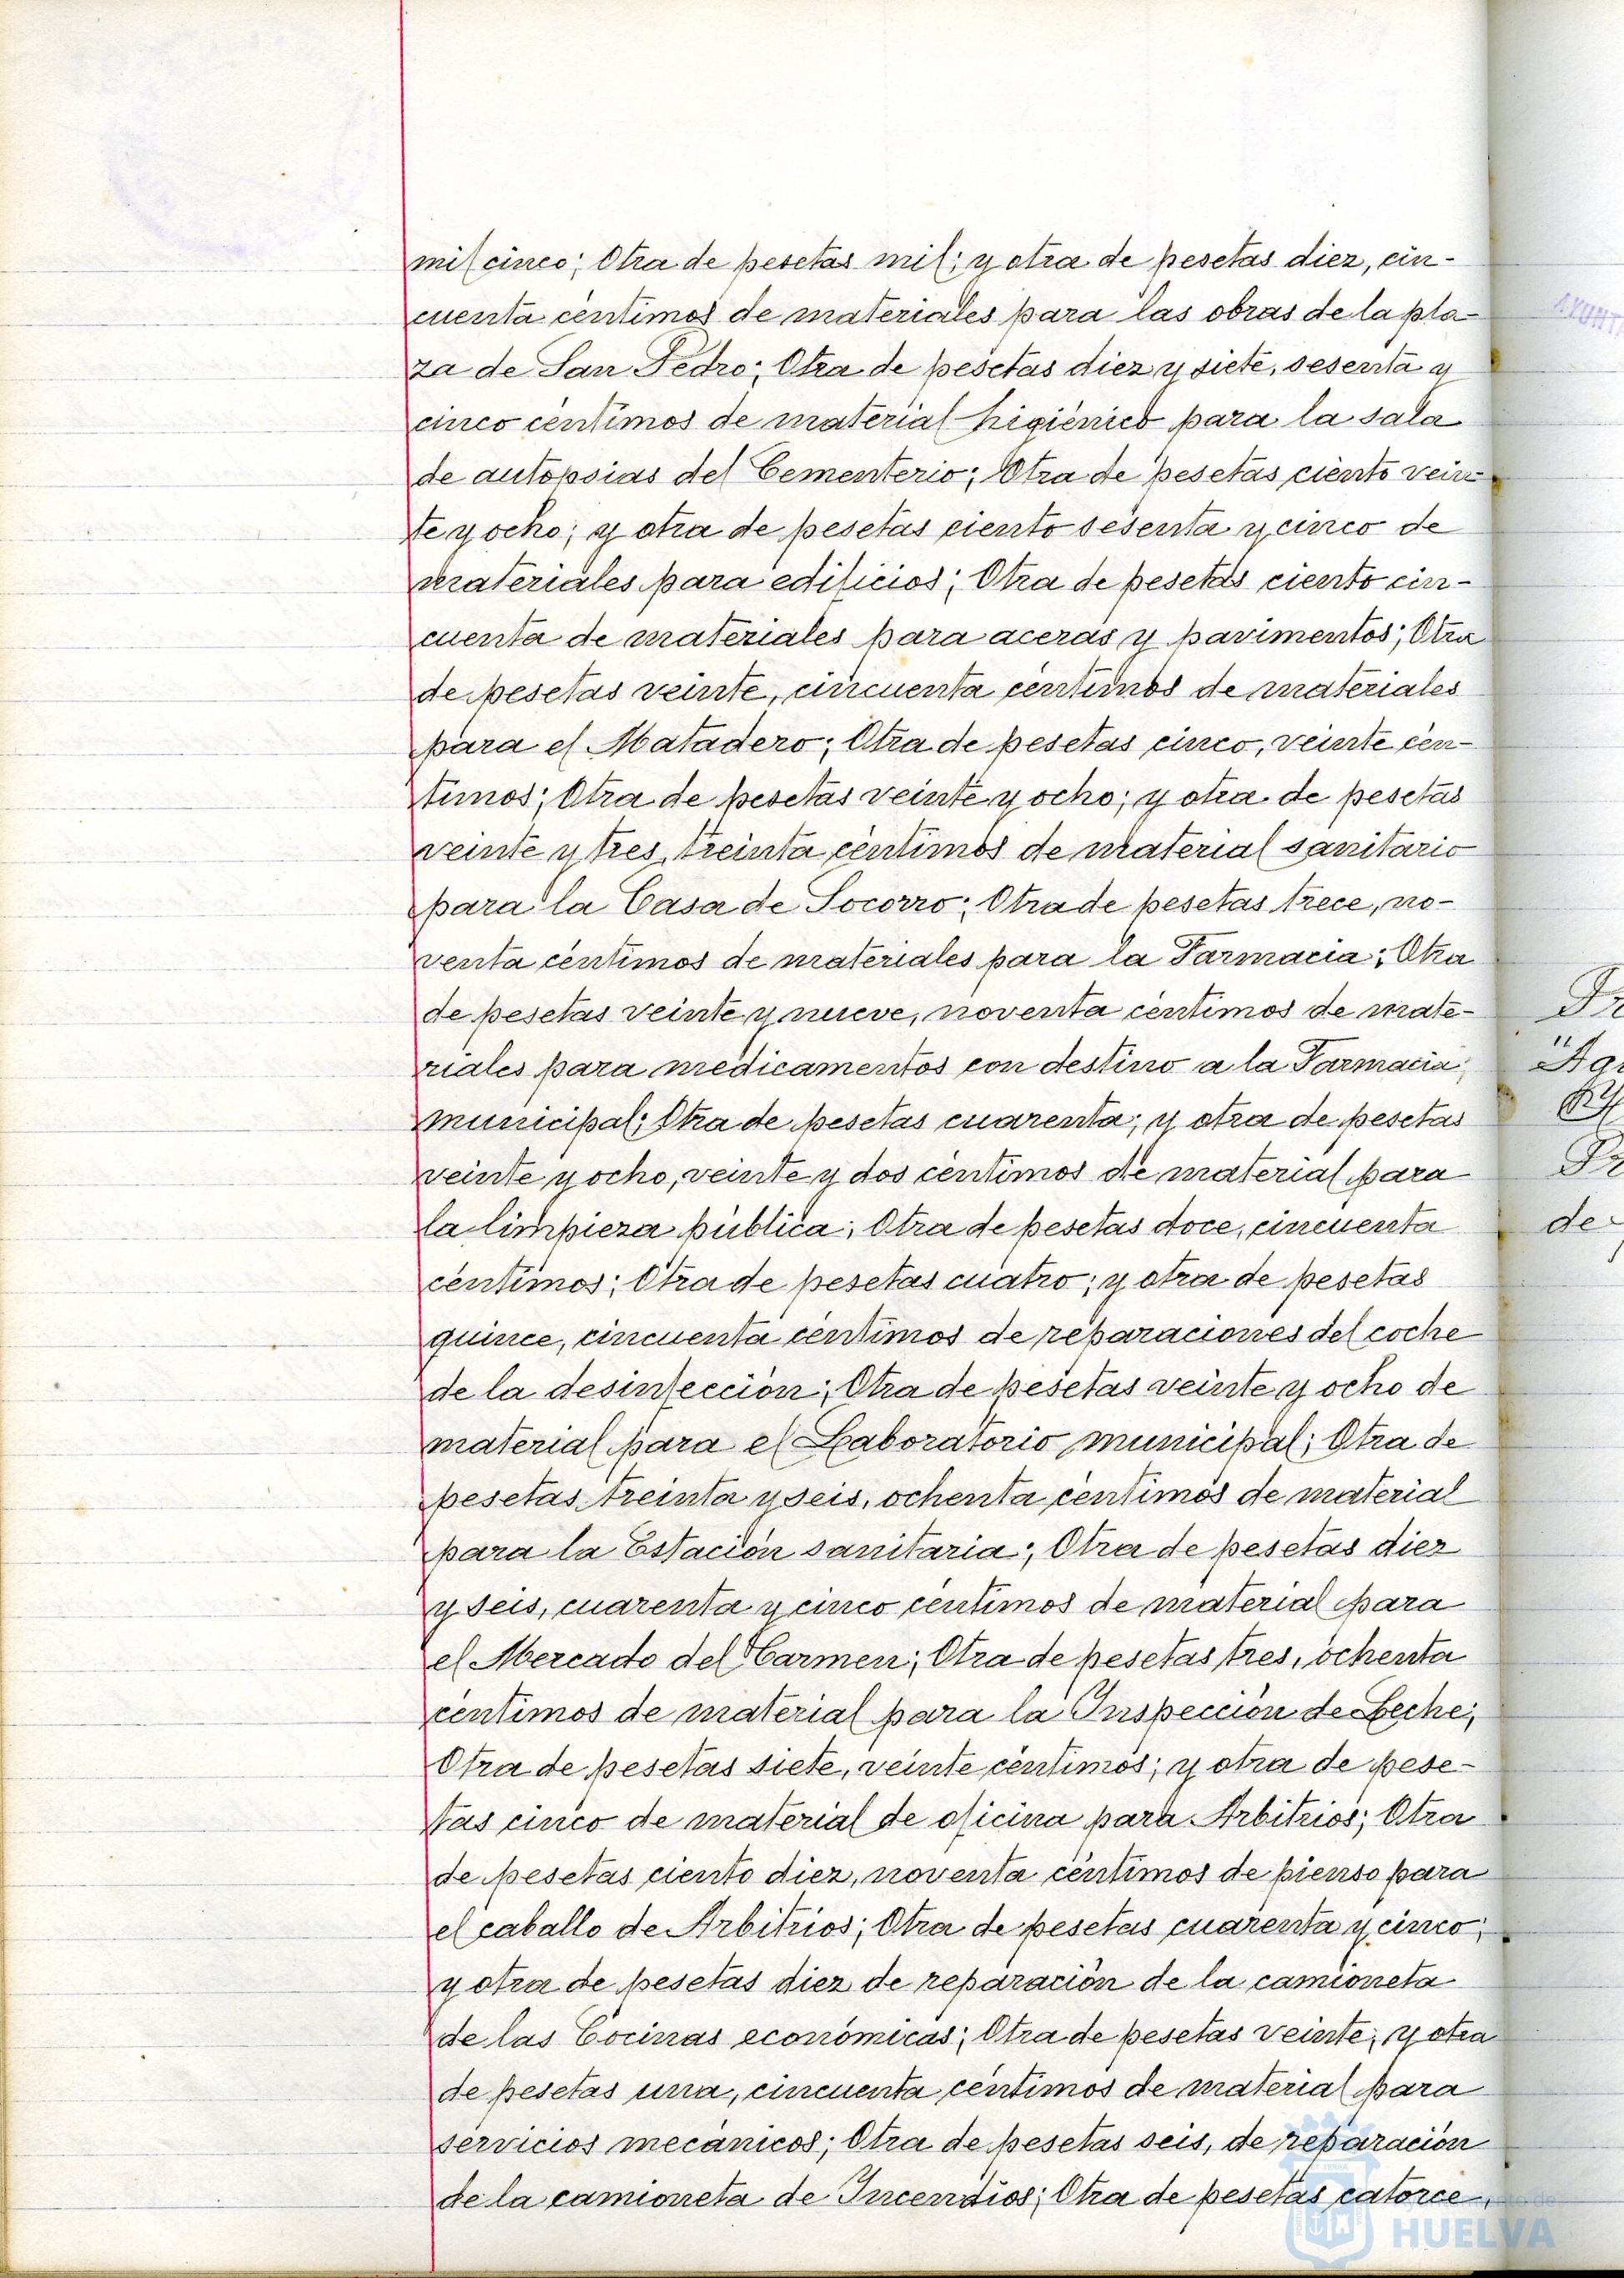 mil cinco; Otra de pesetas mil; y otra de pesetas diez, cin-
cuenta céntimos de materiales para las obras de la pla-
za de San Pedro; Otra de pesetas diez y siete, sesenta y
cinco céntimos de material higiénico para la sala
de autopsias del Cementerio; Otra de pesetas ciento vein-
te y ocho; y otra de pesetas ciento sesenta y cinco de
materiales para edificios; Otra de pesetas ciento cin-
cuenta de materiales para aceras y pavimentos; Otra
de pesetas veinte, cincuenta céntimos de materiales
para el Matadero; Otra de pesetas cinco, veinte cén-
timos; Otra de pesetas veinte y ocho; y otra de pesetas
veinte y tres, treinta céntimos de material sanitario
para la Casa de Socorro; Otra de pesetas trece, no-
venta céntimos de materiales para la Farmacia; Otra
de pesetas veinte y nueve, noventa céntimos de mate-
riales para medicamentos con destino a la Farmacia
municipal; Otra de pesetas cuarenta; y otra de pesetas
veinte y ocho, veinte y dos céntimos de material para
la limpieza pública; Otra de pesetas doce, cincuenta
céntimos; Otra de pesetas cuatro; y otra de pesetas
quince, cincuenta céntimos de reparaciones del coche
de la desinfección; Otra de pesetas veinte y ocho de
material para el Laboratorio municipal; Otra de
pesetas treinta y seis, ochenta céntimos de material
para la Estación sanitaria; Otra de pesetas diez
y seis, cuarenta y cinco céntimos de material para
el Mercado del Carmen; Otra de pesetas tres, ochenta
céntimos de material para la Inspección de Leche;
Otra de pesetas siete, veinte céntimos; y otra de pese-
tas cinco de material de oficina para Arbitrios; Otra
de pesetas ciento diez, noventa céntimos de pienso para
el caballo de Arbitrios; Otra de pesetas cuarenta y cinco;
y otra de pesetas diez de reparación de la camioneta
de las Cocinas económicas; Otra de pesetas veinte; y otra
de pesetas una, cincuenta céntimos de material para
servicios mecánicos; Otra de pesetas seis, de reparación
de la camioneta de Incendios; Otra de pesetas catorce,
de
HUELVA